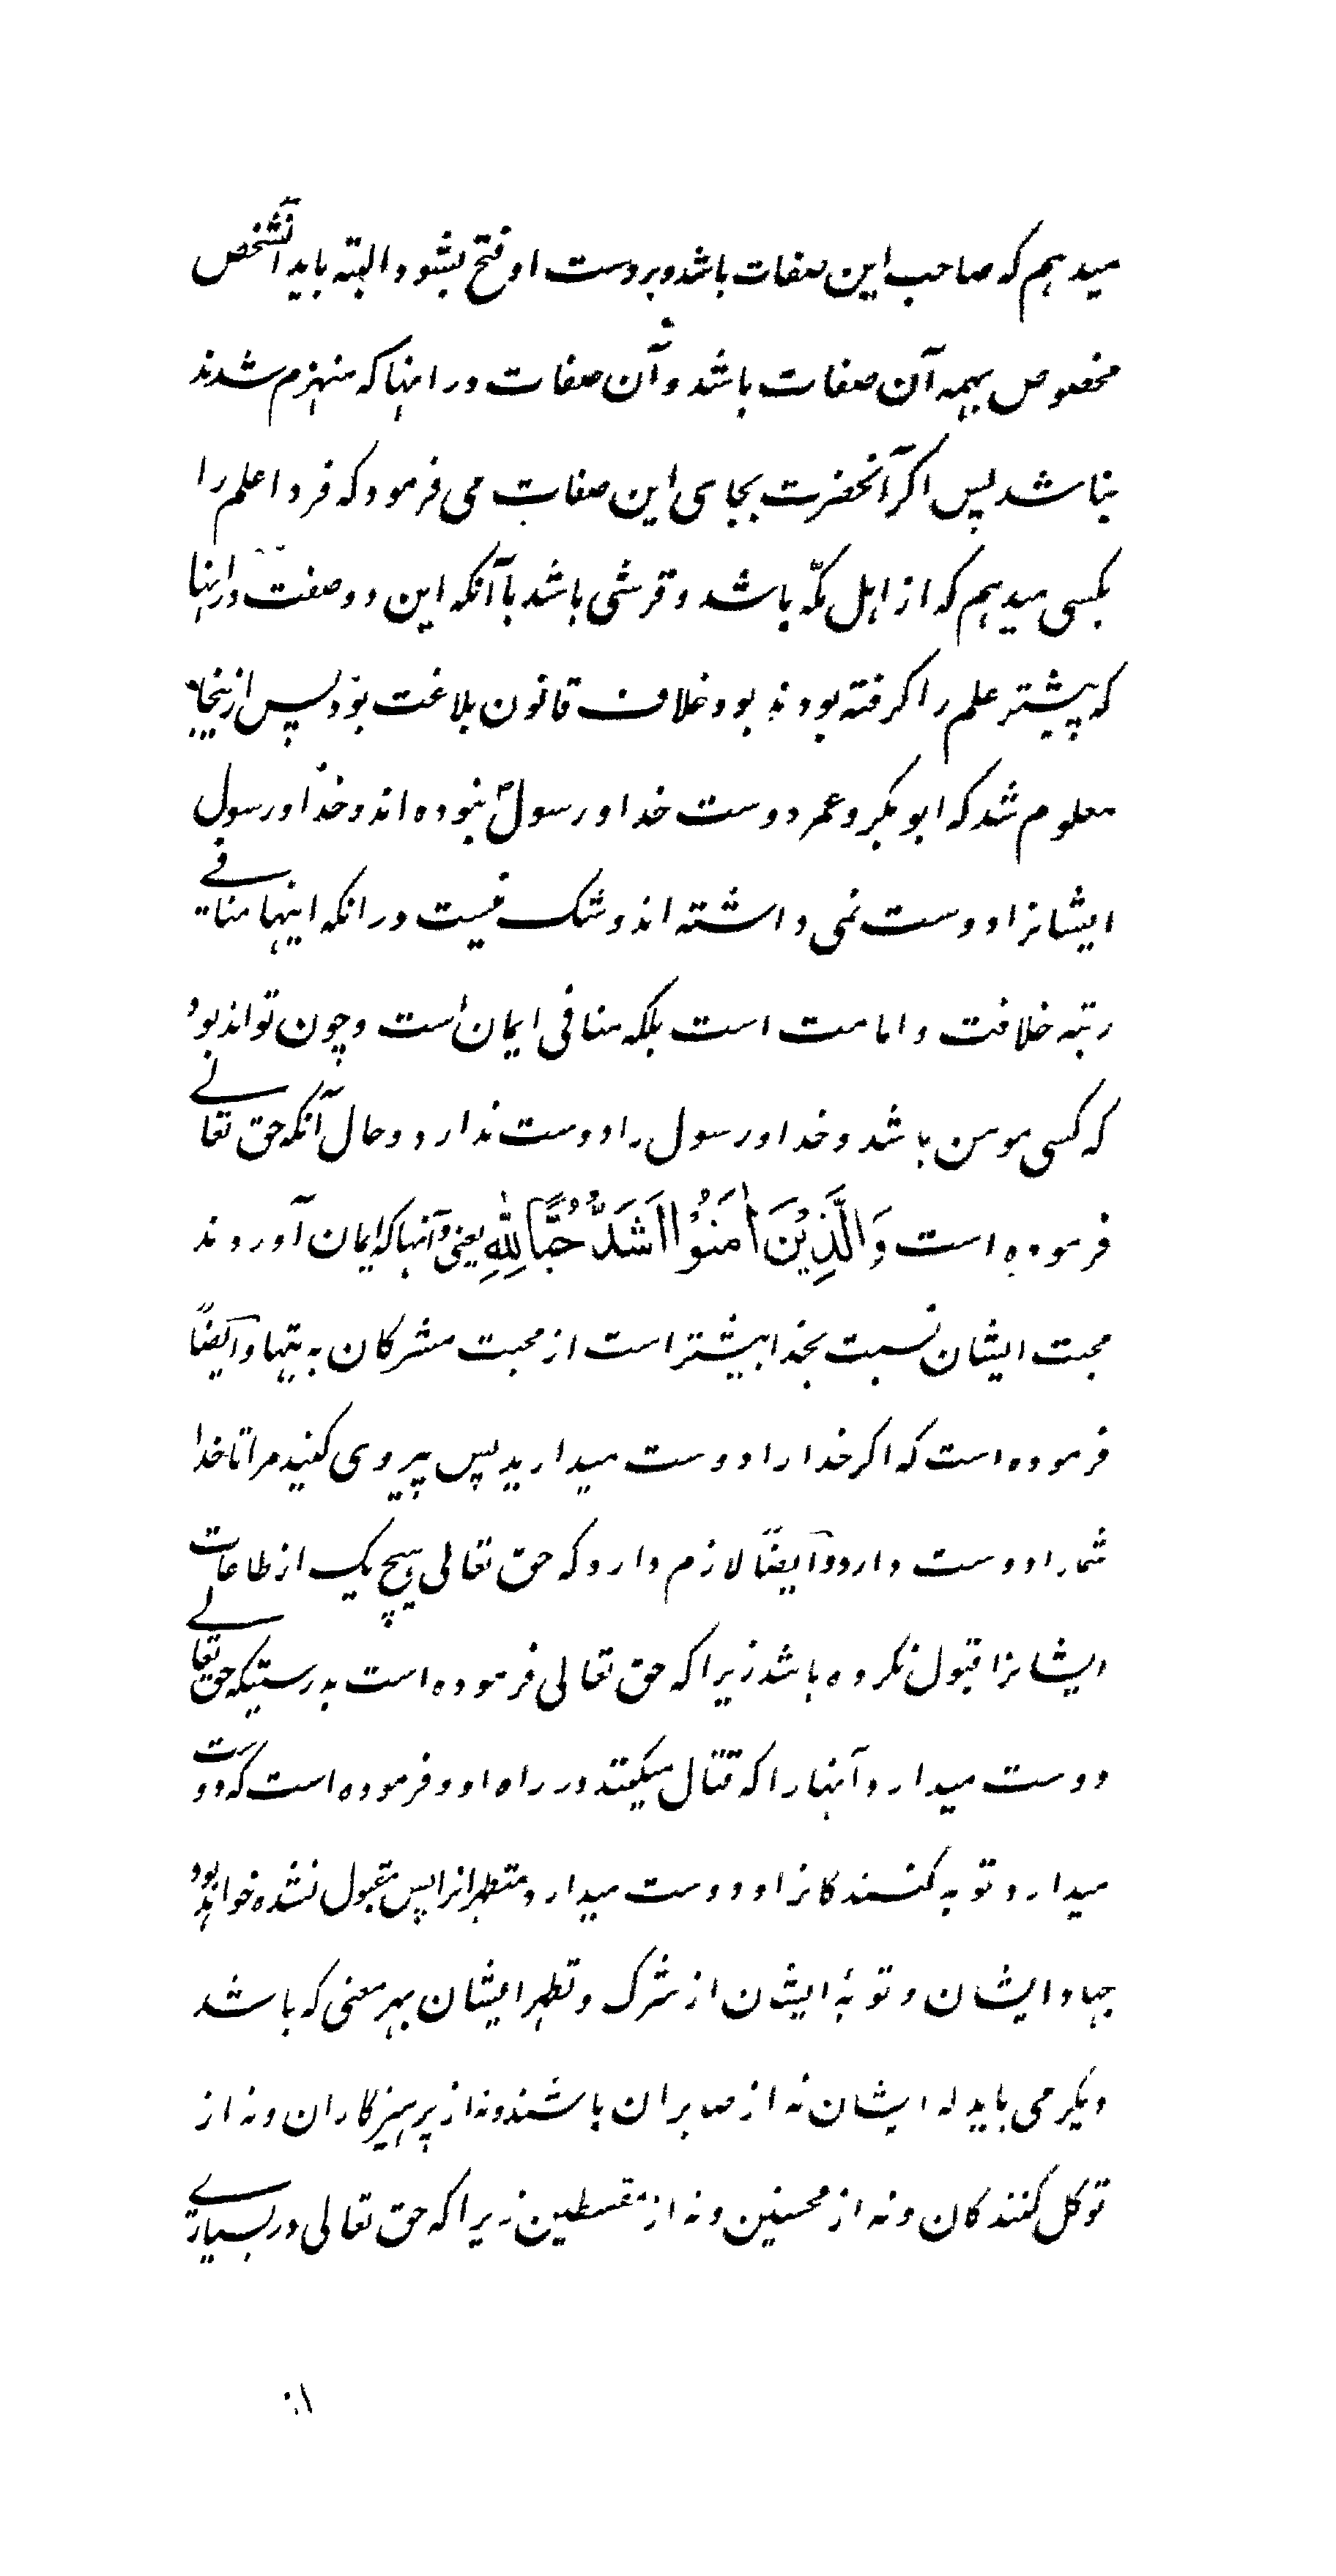 میدهم که صاحب این صفات باشد و بر دست او فتح بشود البته باید آنشخص
مخصوص بهمه آن صفات باشد و آن صفات در اینها که منهزم شدند
نباشد پس اکر آنحضرت بجای این صفات می فرمود که فردا علم را
بکسی میدهم که از اهل مکّه باشد و قرشی باشد با آنکه این دو صفت در اینها
که پیشتر علم را کرفته بودند بود خلاف قانون بلاغت بود پس از ینجا
معلوم شد که ابو بکر و عمر دوست خدا و رسولؐ نبوده اند و خدا و رسول
ایشانرا دوست نمی داشته اند و شک نیست در انکه اینها منافے
رتبه خلافت و امامت است بلکه منافی ایمان است و چون تواند بود
که کسی مومن باشد و خدا و رسول را دوست ندارد و حال آنکه حق تعالے
فرموده است وَالَّذِيْنَ اٰمَنُوْا اَشَدُّ حُبًّا لِلّٰهِ یعنی و آنها که ایمان آوردند
محبت ایشان نسبت بخدا بیشتر است از محبت مشرکان به بتها و ایضًا
فرموده است که اکر خدا را دوست میدارید پس پیروی کنید مرا تا خدا
شمارا دوست دارد و ایضًا لازم دارد که حق تعالی هیچ یک از طاعات
ایشانرا قبول نکرده باشد زیرا که حق تعالی فرموده است بدرستیکه حق تعالے
دوست میدارد آنها را که قتال میکنند در راه او و فرموده است که دوست
میدارد توبه کنندکانرا و دوست میدارد متطهرانرا پس مقبول نشده خواهد بود
جهاد ایشان و توبهٔ ایشان از شرک و تطهر ایشان بهر معنی که باشد
دیکر می باید که ایشان نه از صابران باشند و نه از پرهیزکاران و نه از
توکل کنندکان و نه از محسنین و نه از مقسطین زیرا که حق تعالی در بسیارے